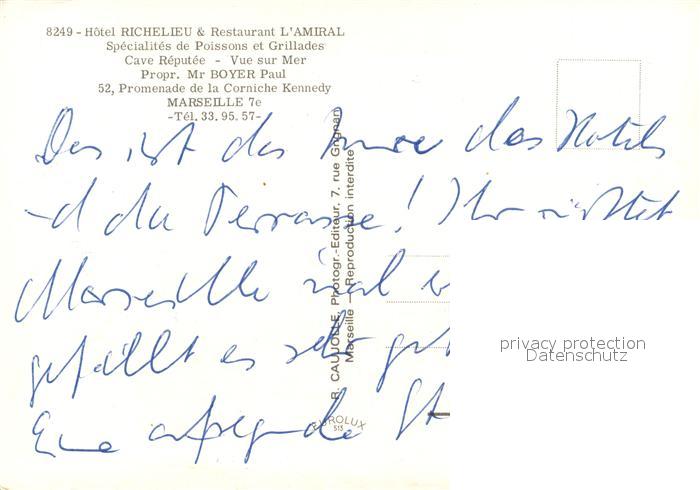 8249 - Hôtel RICHELIEU & Restaurant L'AMIRAL
Spécialités de Poissons et Grillades
Cave Réputée - Vue sur Mer
Propr. Mr BOYER Paul
52, Promenade de la Corniche Kennedy
MARSEILLE 7e
-Tél. 33. 95. 57-
Das ist das des Hotels
der Terrasse! Ihr
Marseille mal
gefällt es sehr gut
Eine aufregende St
R. CAUJOLLE, Photogr.-Editeur, 7, rue Grignan
Marseille — Reproduction interdite
EUROLUX
513
privacy protection
Datenschutz